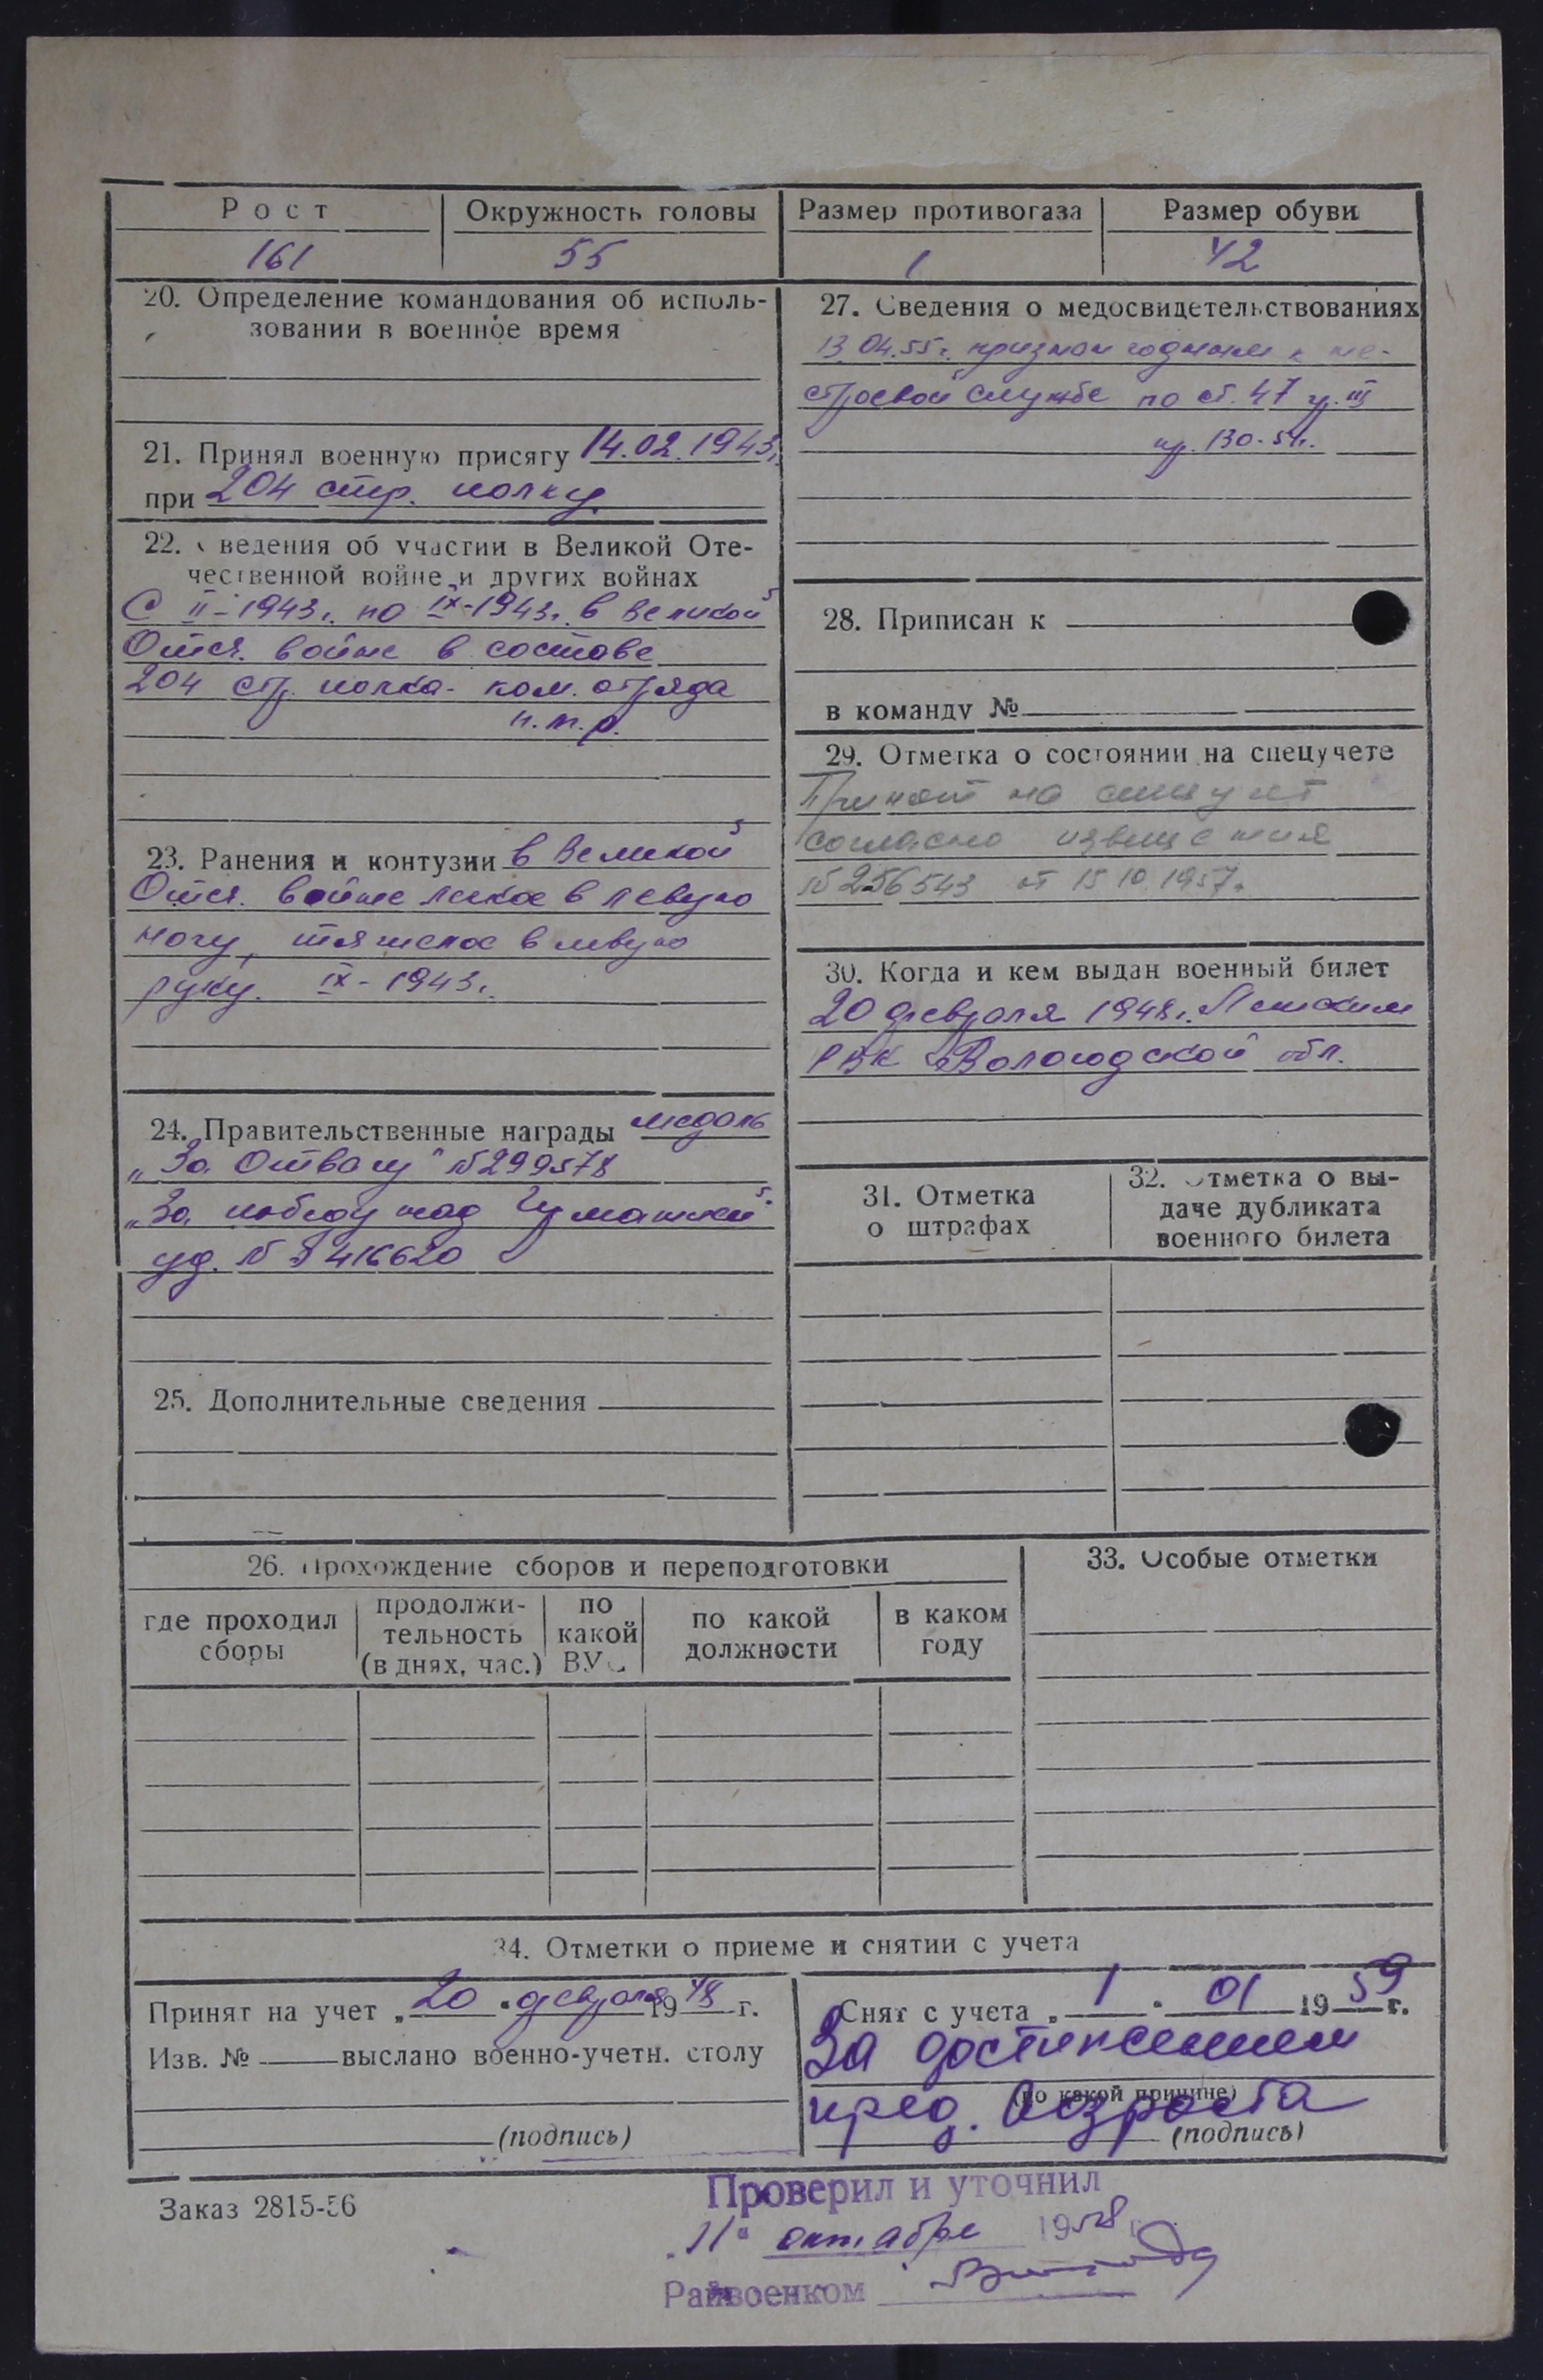 Рост
Окружность головы
Размер противогаза
Размер обуви
161
55
1
42
20. Определение командования об исполь-
зовании в военное время
21. Принял военную присягу 14.02.1943г.
при 204 стр. полку.
22. Сведения об участии в Великой Оте-
чественной войне и других войнах
С II-1943г. по IX-1943г. в Великой
Отеч. войне в составе
204 стр. полка - ком. отряда
п.т.р.
23. Ранения и контузии в Великой
Отеч. войне легкое в левую
ногу, тяжелое в левую
руку. IX-1943г.
24. Правительственные награды медаль
„За Отвагу" №299578
„За победу над Германией"
уд. № 416620
25. Дополнительные сведения
27. Сведения о медосвидетельствованиях
13.04.55г. признан годным к не-
строевой службе по ст. 47 гр. III
пр. 130-51г.
28. Приписан к
в команду №
29. Отметка о состоянии на спецучете
Принят на спецучет
согласно извещения
№256543 от 15.10.1957г.
30. Когда и кем выдан военный билет
20 февраля 1948г.
РВК Вологодской обл.
31. Отметка
о штрафах
32. Отметка о вы-
даче дубликата
военного билета
26. Прохождение сборов и переподготовки
где проходил
сборы
продолжи-
тельность
(в днях, час.)
по
какой
ВУС
по какой
должности
в каком
году
33. Особые отметки
34. Отметки о приеме и снятии с учета
Принят на учет „20" февраля 1948 г.
Изв. № выслано военно-учетн. столу
(подпись)
Снят с учета „1" 01 1959 г.
За достижением
(по какой причине)
пред. возраста
(подпись)
Заказ 2815-56
Проверил и уточнил
„11" октября 1958 г.
Райвоенком